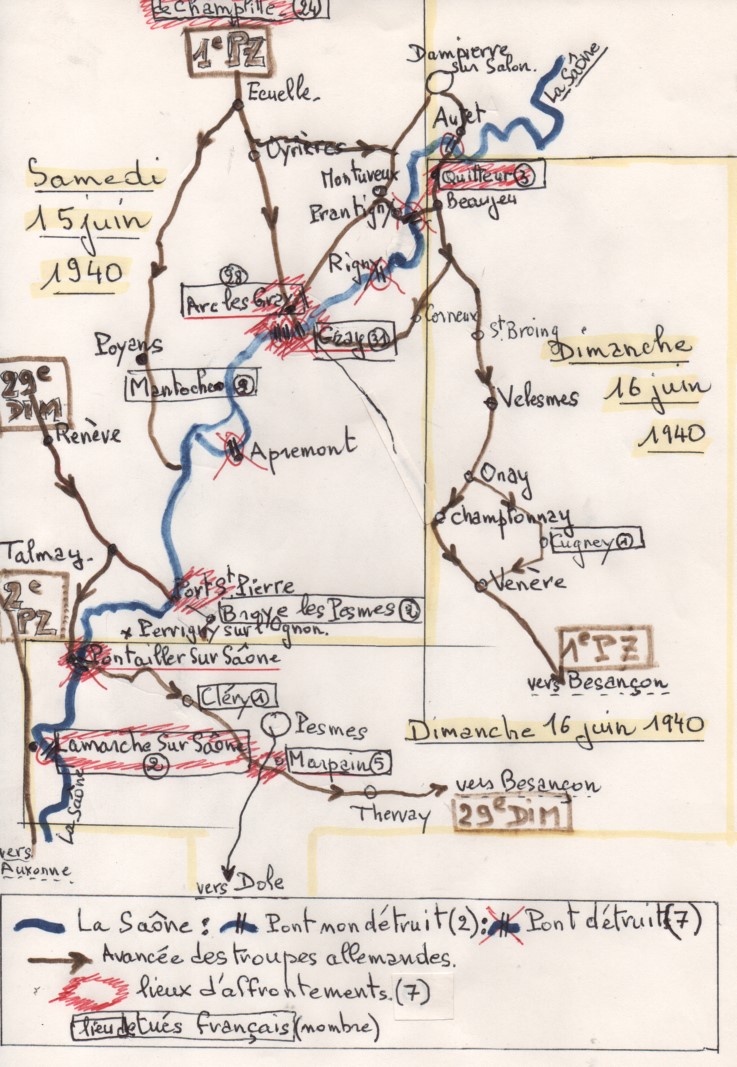 de Champlitte (24)
1e PZ
Dampierre
sur Salon.
La Saône
Ecuelle.
Autet
Oyrières
Montureux
Quitteur (3)
Prantigny
Beaujeu
Samedi
15 juin
1940
Rigny
(98)
Arc les Gray
Gray (31)
Corneux
St Broing
Poyans
Mantoche (9)
Dimanche
16 juin
1940
29e
DIM
Velesmes
Renève
Apremont
Onay
Champtonnay
Cugney (1)
Talmay.
Venère
2e
PZ
Port St Pierre
Broye les Pesmes (2)
x Perrigny sur l'Ognon.
1e PZ
Pontailler sur Saône
vers Besançon
Cléry (1)
Pesmes
Dimanche 16 juin 1940
Lamarche sur Saône
(2)
Marpain (5)
vers Besançon
Thervay
29e DIM
La Saône
vers
Auxonne
vers Dole
La Saône : Pont non détruit (2) : Pont détruit (7)
Avancée des troupes allemandes.
lieux d'affrontements. (7)
lieu de tués français (nombre)